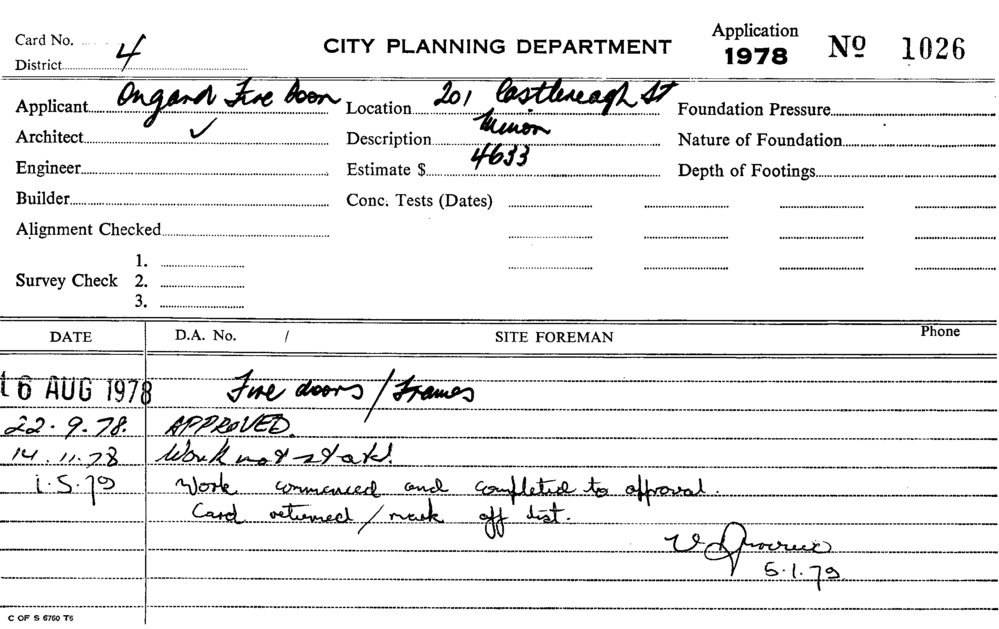 Card No. Application
District 4 CITY PLANNING DEPARTMENT 1978 Nº 1026
Applicant Ongard Fire Doors Location 201 Castlereagh St Foundation Pressure
Architect ✓ Description Minor Nature of Foundation
Engineer Estimate $ 4633 Depth of Footings
Builder Conc. Tests (Dates)
Alignment Checked
1.
Survey Check 2.
3.
DATE D.A. No. / SITE FOREMAN Phone
16 AUG 1978 Fire doors / Frames
22.9.78. APPROVED.
14.11.78 Work not started.
1.5.79 Work commenced and completed to approval.
Card returned / mark off list.
5.1.79
C OF S 6760 T6